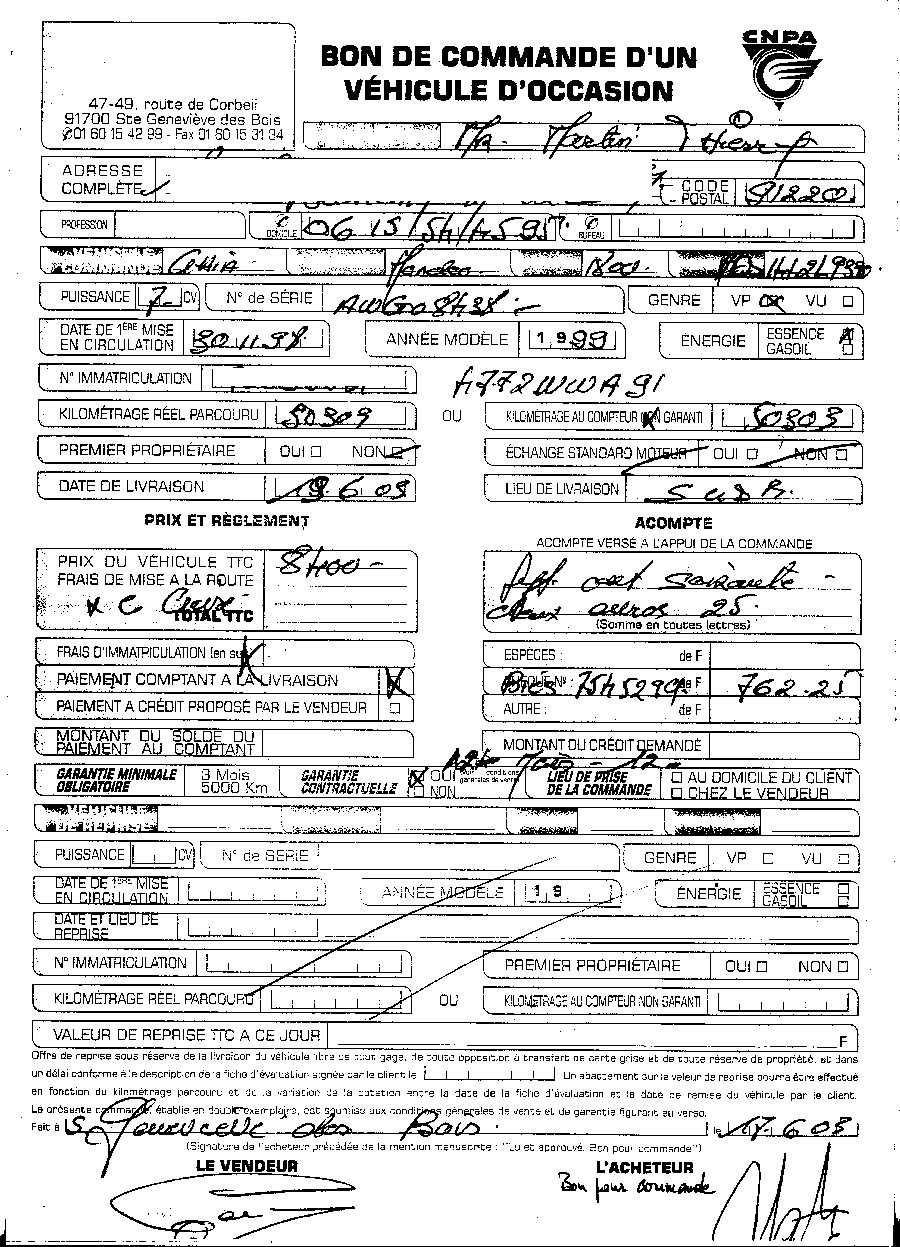 CNPA
BON DE COMMANDE D'UN
VÉHICULE D'OCCASION
47-49, route de Corbeil
91700 Ste Geneviève des Bois
01 60 15 42 99 - Fax 01 60 15 31 34
Mr. Martin Thierry
ADRESSE
COMPLÈTE
CODE
POSTAL 91220
PROFESSION DOMICILE 06 15/54/45 95 BUREAU
1800
PUISSANCE 7 CV N° de SÉRIE GENRE VP VU
DATE DE 1ÈRE MISE
EN CIRCULATION 30.11.98 ANNÉE MODÈLE 1999 ÉNERGIE ESSENCE
GASOIL
N° IMMATRICULATION 4772WWA91
KILOMÉTRAGE RÉEL PARCOURU 50309 OU KILOMÉTRAGE AU COMPTEUR NON GARANTI 50303
PREMIER PROPRIÉTAIRE OUI NON ÉCHANGE STANDARD MOTEUR OUI NON
DATE DE LIVRAISON 19.6.03 LIEU DE LIVRAISON SGDB.
PRIX ET RÈGLEMENT ACOMPTE
ACOMPTE VERSÉ A L'APPUI DE LA COMMANDE
PRIX DU VÉHICULE TTC 8400 -
FRAIS DE MISE A LA ROUTE Sept cent soixante -
TOTAL TTC deux euros 25.
(Somme en toutes lettres)
FRAIS D'IMMATRICULATION (en sus) ESPÈCES : de F
PAIEMENT COMPTANT A LA LIVRAISON X CHÈQUE N° de F 762.25
PAIEMENT A CRÉDIT PROPOSÉ PAR LE VENDEUR AUTRE : de F
MONTANT DU SOLDE DU
PAIEMENT AU COMPTANT MONTANT DU CRÉDIT DEMANDÉ
GARANTIE MINIMALE
OBLIGATOIRE 3 Mois
5000 Km GARANTIE
CONTRACTUELLE X OUI
NON LIEU DE PRISE
DE LA COMMANDE AU DOMICILE DU CLIENT
CHEZ LE VENDEUR
PUISSANCE CV N° de SÉRIE GENRE VP VU
DATE DE 1ÈRE MISE
EN CIRCULATION ANNÉE MODÈLE 19 ÉNERGIE ESSENCE
GASOIL
DATE ET LIEU DE
REPRISE
N° IMMATRICULATION PREMIER PROPRIÉTAIRE OUI NON
KILOMÉTRAGE RÉEL PARCOURU OU KILOMÉTRAGE AU COMPTEUR NON GARANTI
VALEUR DE REPRISE TTC A CE JOUR F
Offre de reprise sous réserve de la livraison du véhicule libre de tout gage, de toute opposition à transfert de carte grise et de toute réserve de propriété, et dans
un délai conforme à la description de la fiche d'évaluation signée par le client le Un abattement sur la valeur de reprise pourra être effectué
en fonction du kilométrage parcouru et de la variation de la cotation entre la date de la fiche d'évaluation et la date de remise du véhicule par le client.
La présente commande, établie en double exemplaire, est soumise aux conditions générales de vente et de garantie figurant au verso.
Fait à des Bois le 17.6.03
(Signature de l'acheteur précédée de la mention manuscrite : "Lu et approuvé. Bon pour commande")
LE VENDEUR L'ACHETEUR
Bon pour commande